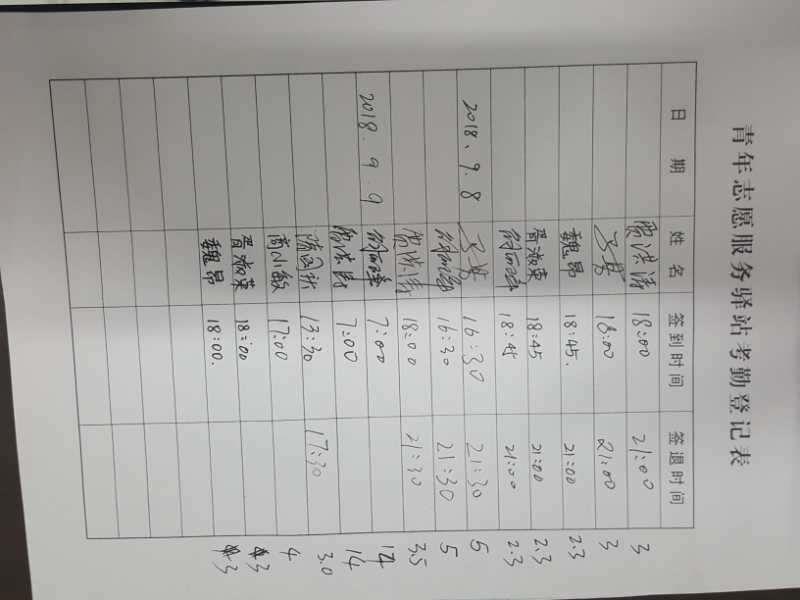 青年志愿服务驿站考勤登记表
日期 姓名 签到时间 签退时间
18:00 21:00 3
18:00 21:00 3
魏昂 18:45. 21:00 2.3
晋淑荣 18:45 21:00 2.3
18:45 21:00 2.3
2018、9.8 16:30 21:30 5
16:30 21:30 5
18:00 21:30 3.5
2018.9.9 7:00 14
7:00 14
13:30 17:30 3.0
高小敏 17:00 4
晋淑荣 18:00 3
魏昂 18:00. 3